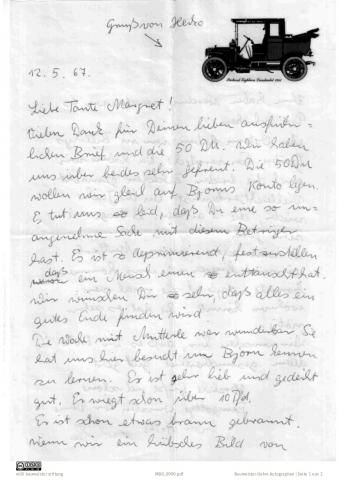 Gruß von Heiko
Packard Eighteen Landaulet 1912
12. 5. 67.
Liebe Tante Margret!
Vielen Dank für Deinen lieben ausführ-
lichen Brief und die 50 DM. Wir haben
uns über beides sehr gefreut. Die 50 DM
wollen wir gleich auf Bjorns Konto legen.
Es tut uns so leid, daß Du eine so un-
angenehme Sache mit diesem Betrüger
hast. Es ist so deprimierend, festzustellen
daß ein Mensch einen so enttäuscht hat.
Wir wünschen Dir so sehr, daß alles ein
gutes Ende finden wird
Die Woche mit Mutterle war wunderbar Sie
hat uns hier besucht um Bjorn kennen
zu lernen. Er ist sehr lieb und gedeiht
gut. Er wiegt schon über 10 Pfd.
Er ist schon etwas braun gebrannt.
Wenn wir ein hübsches Bild von
willi baumeister stiftung
Baumeister-Archiv Autographen | Seite 1 von 2